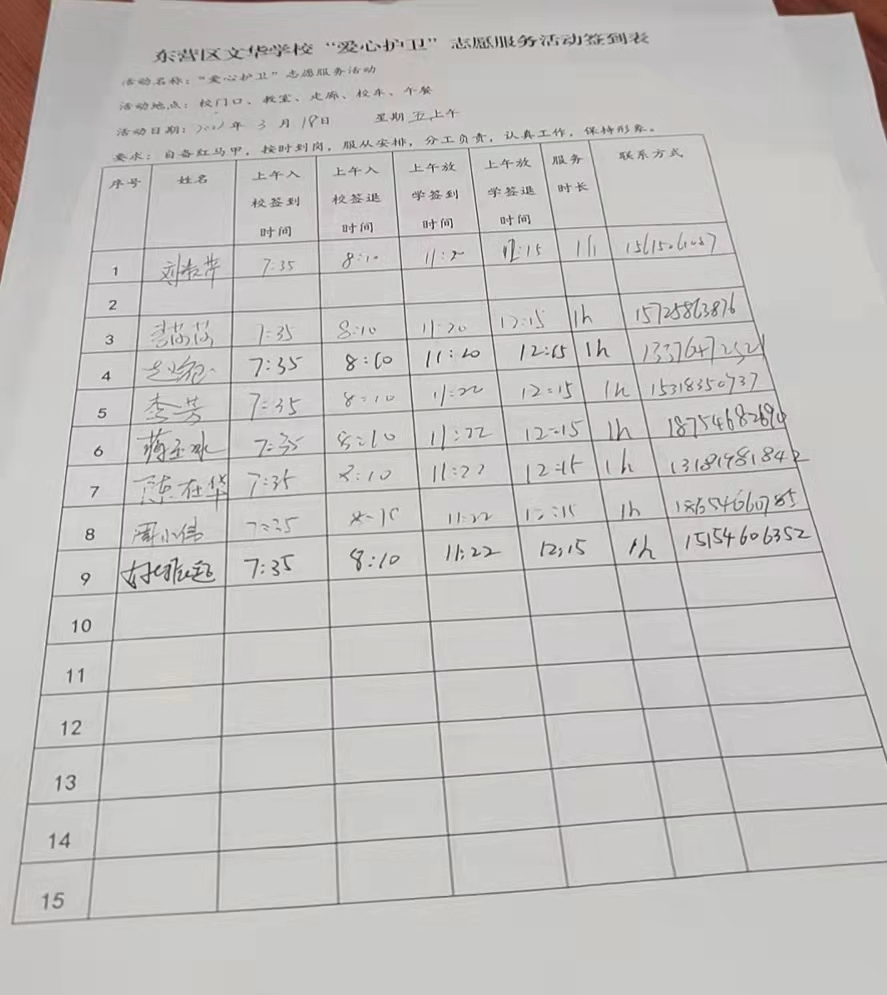 东营区文华学校“爱心护卫”志愿服务活动签到表
活动名称：“爱心护卫”志愿服务活动
活动地点：校门口、教室、走廊、校车、午餐
活动日期： 年 3 月 18日 星期 五上午
要求：自备红马甲，按时到岗，服从安排，分工负责，认真工作，保持形象。
序号 姓名 上午入校签到时间 上午入校签退时间 上午放学签到时间 上午放学签退时间 服务时长 联系方式
1 7:35 8:10 11:20 12:15 1h
2
3 7:35 8:10 11:20 12:15 1h 15725863876
4 7:35 8:10 11:20 12:15 1h
5 李芳 7:35 8:10 11:22 12:15 1h 15318350737
6 蒋玉冰 7:35 8:10 11:22 12:15 1h
7 陈在华 7:35 8:10 11:22 12:15 1h 13181981842
8 周小伟 7:35 8:10 11:22 12:15 1h 18654660785
9 7:35 8:10 11:22 12:15 1h 15154606352
10
11
12
13
14
15